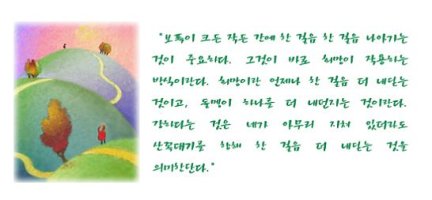 "보폭이 크든 작든 간에 한 걸음 한 걸음 나아가는
것이 중요하다. 그것이 바로 희망이 작용하는
방식이란다. 희망이란 언제나 한 걸음 더 내딛는
것이고, 돌멩이 하나를 더 내던지는 것이란다.
강하다는 것은 네가 아무리 지쳐 있더라도
산꼭대기를 향해 한 걸음 더 내딛는 것을
의미한단다."